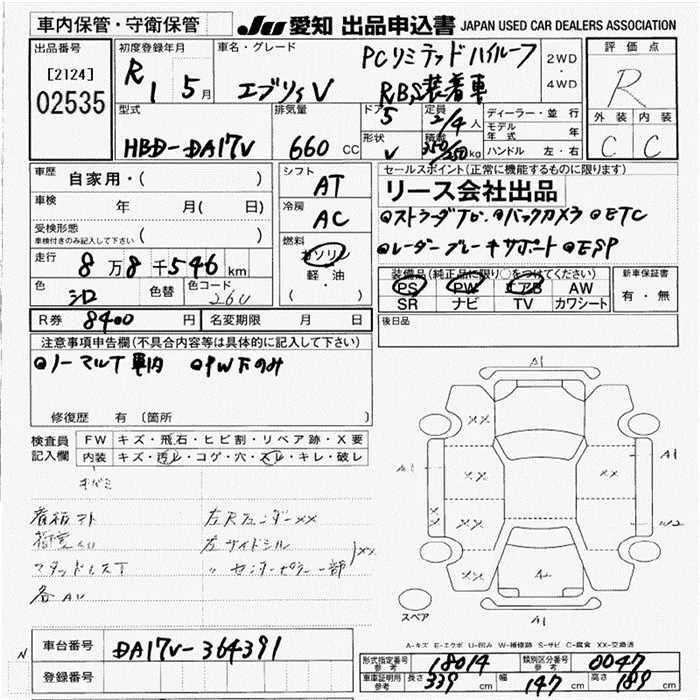 車内保管・守衛保管
JU 愛知 出品申込書 JAPAN USED CAR DEALERS ASSOCIATION
出品番号
[2124]
02535
初度登録年月
R1 5月
車名・グレード
エブリィV
PCリミテッドハイルーフ
RBS装着車
2WD
・
4WD
評価点
R
外装 内装
C C
型式
HBD-DA17V
排気量
660 CC
ドア
5
形状
V
定員
2/4人
積載
350/250kg
ディーラー・並行
モデル年式 年
ハンドル 左・右
車歴
自家用・( )
車検
年 月( 日)
受検形態
車検付きのみ記入して下さい ( )
走行
8万8千546km
色
シロ
色替
色コード
26U
シフト
AT
冷房
AC
燃料
ガソリン
軽・油
( )
セールスポイント(正常に機能するものに限ります)
リース会社出品
●ストラーダTV ●バックカメラ ●ETC
●レーダーブレーキサポート ●ESP
装備品(純正品に限り○をつけてください)
PS PW エアB AW
SR ナビ TV カワシート
新車保証書
有・無
R券 8400円
名変期限 月 日
後日品
注意事項申告欄(不具合内容等は具体的に記入して下さい)
●ノーマルT車内 ●PW下のみ
修復歴 有 〔箇所
検査員
記入欄
FW キズ・飛石・ヒビ割・リペア跡・X要
内装 キズ・汚レ・コゲ・穴・スレ・キレ・破レ
キバミ
看板アト
左Rフェンダーxx
左サイドシル
〃 センターピラー一部
xx
スタッドレスT
各AU
A1
A1
A1
A1
W2
A2
xx
xx
xx
xx
xx
xx
xx
スペア
A-キズ E-エクボ U-凹み W-補修跡 S-サビ C-腐食 XX-交換済
N
車台番号
DA17V-364391
登録番号
形式指定番号
参考
18014
類別区分番号
参考
0047
車庫証明用
参考
長さ 339 cm
幅 147 cm
高さ 189 cm